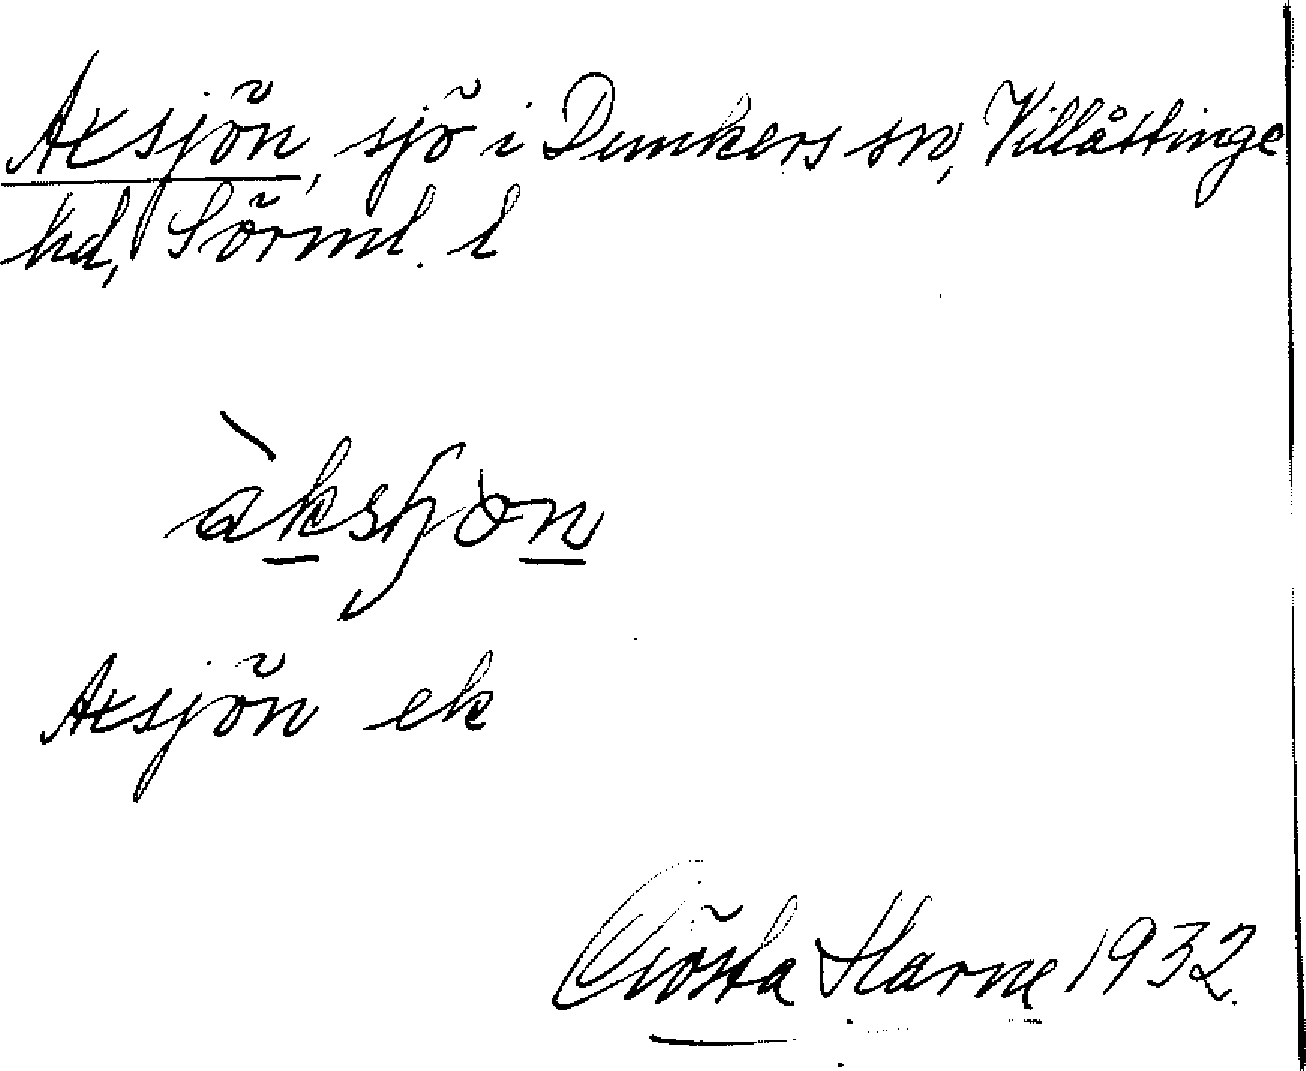 Axsjön, sjö i Dunkers sn, Villåttinge
hd, Sörml. l
àksʃòn
Axsjön ek
Gösta Harne 1932.